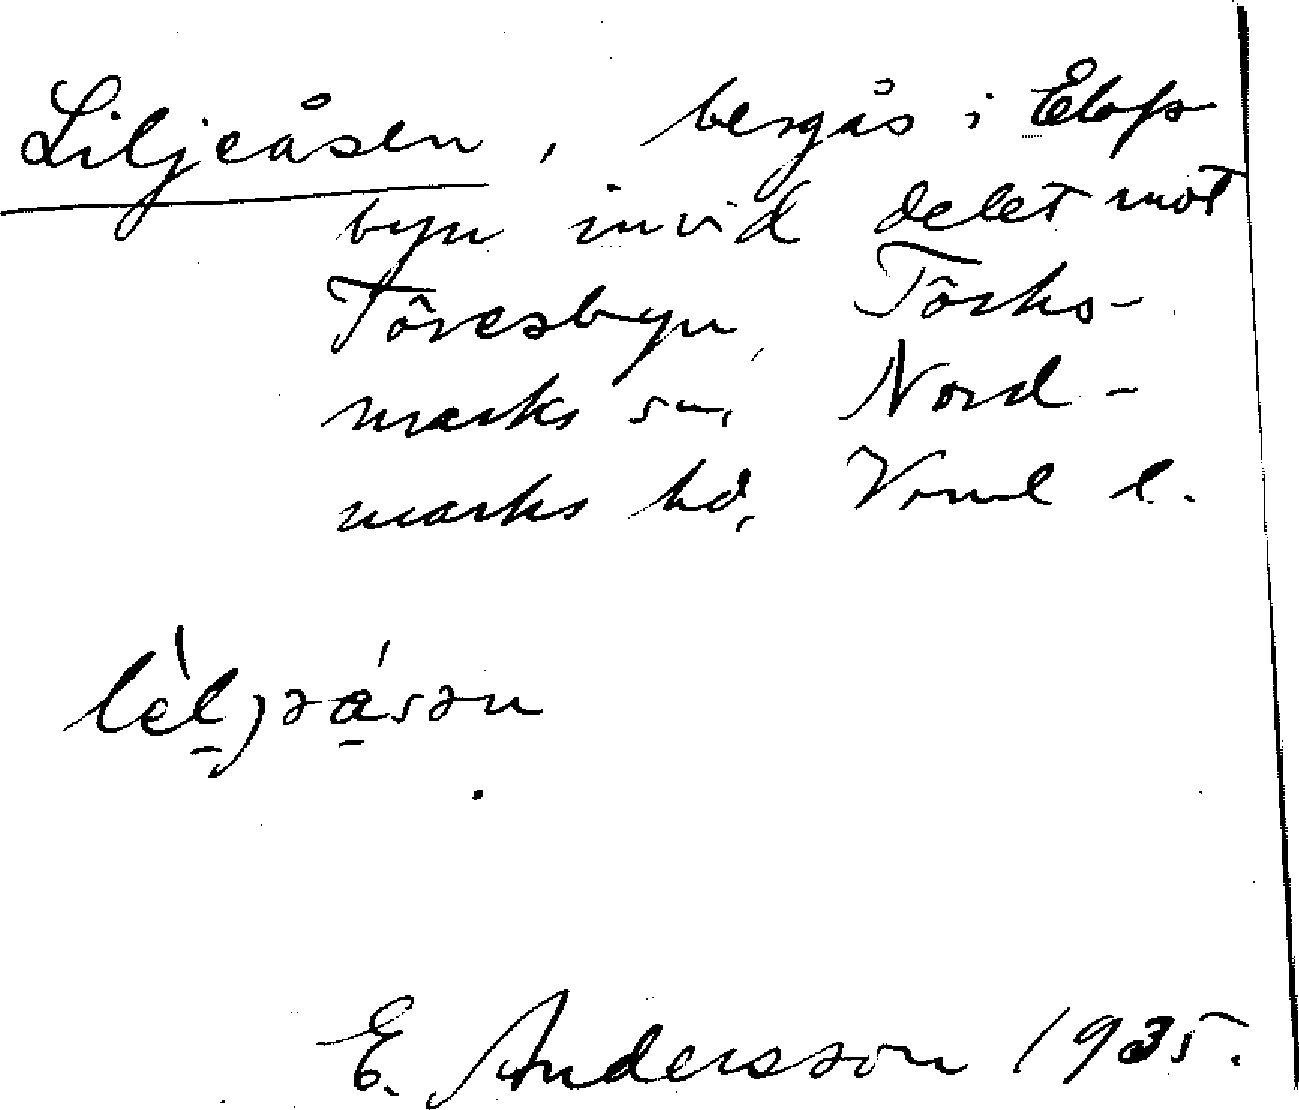 Liljeåsen, bergås i Elofs
byn invid delet mot
Töresbyn, Töcks-
marks sn, Nord-
marks hd, Vrml l.
E. Andersson 1935.